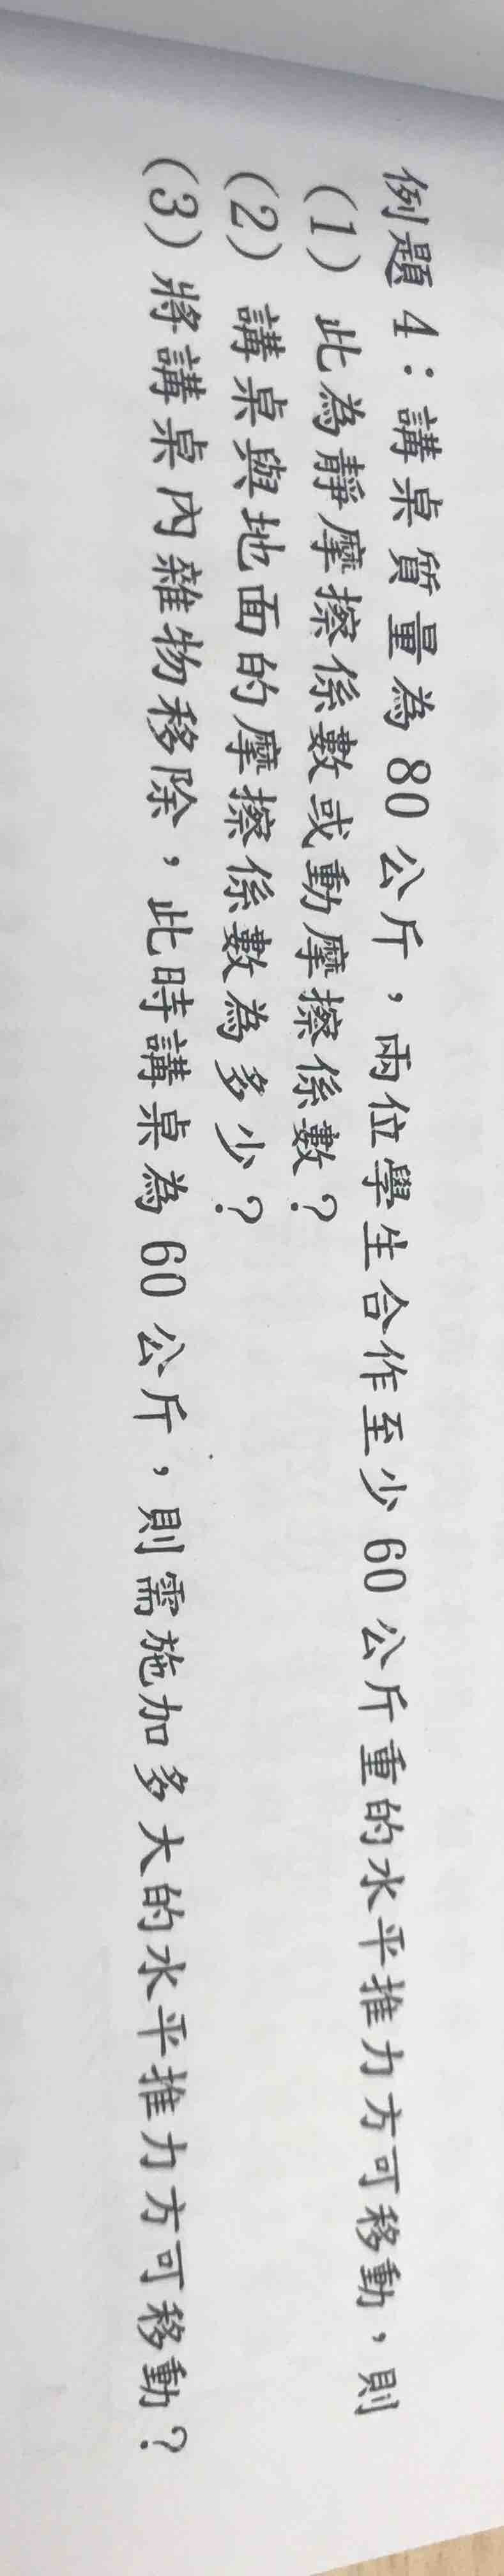 例題 4：講桌質量為 80 公斤，兩位學生合作至少 60 公斤重的水平推力方可移動，則
(1) 此為靜摩擦係數或動摩擦係數？
(2) 講桌與地面的摩擦係數為多少？
(3) 將講桌內雜物移除，此時講桌為 60 公斤，則需施加多大的水平推力方可移動？